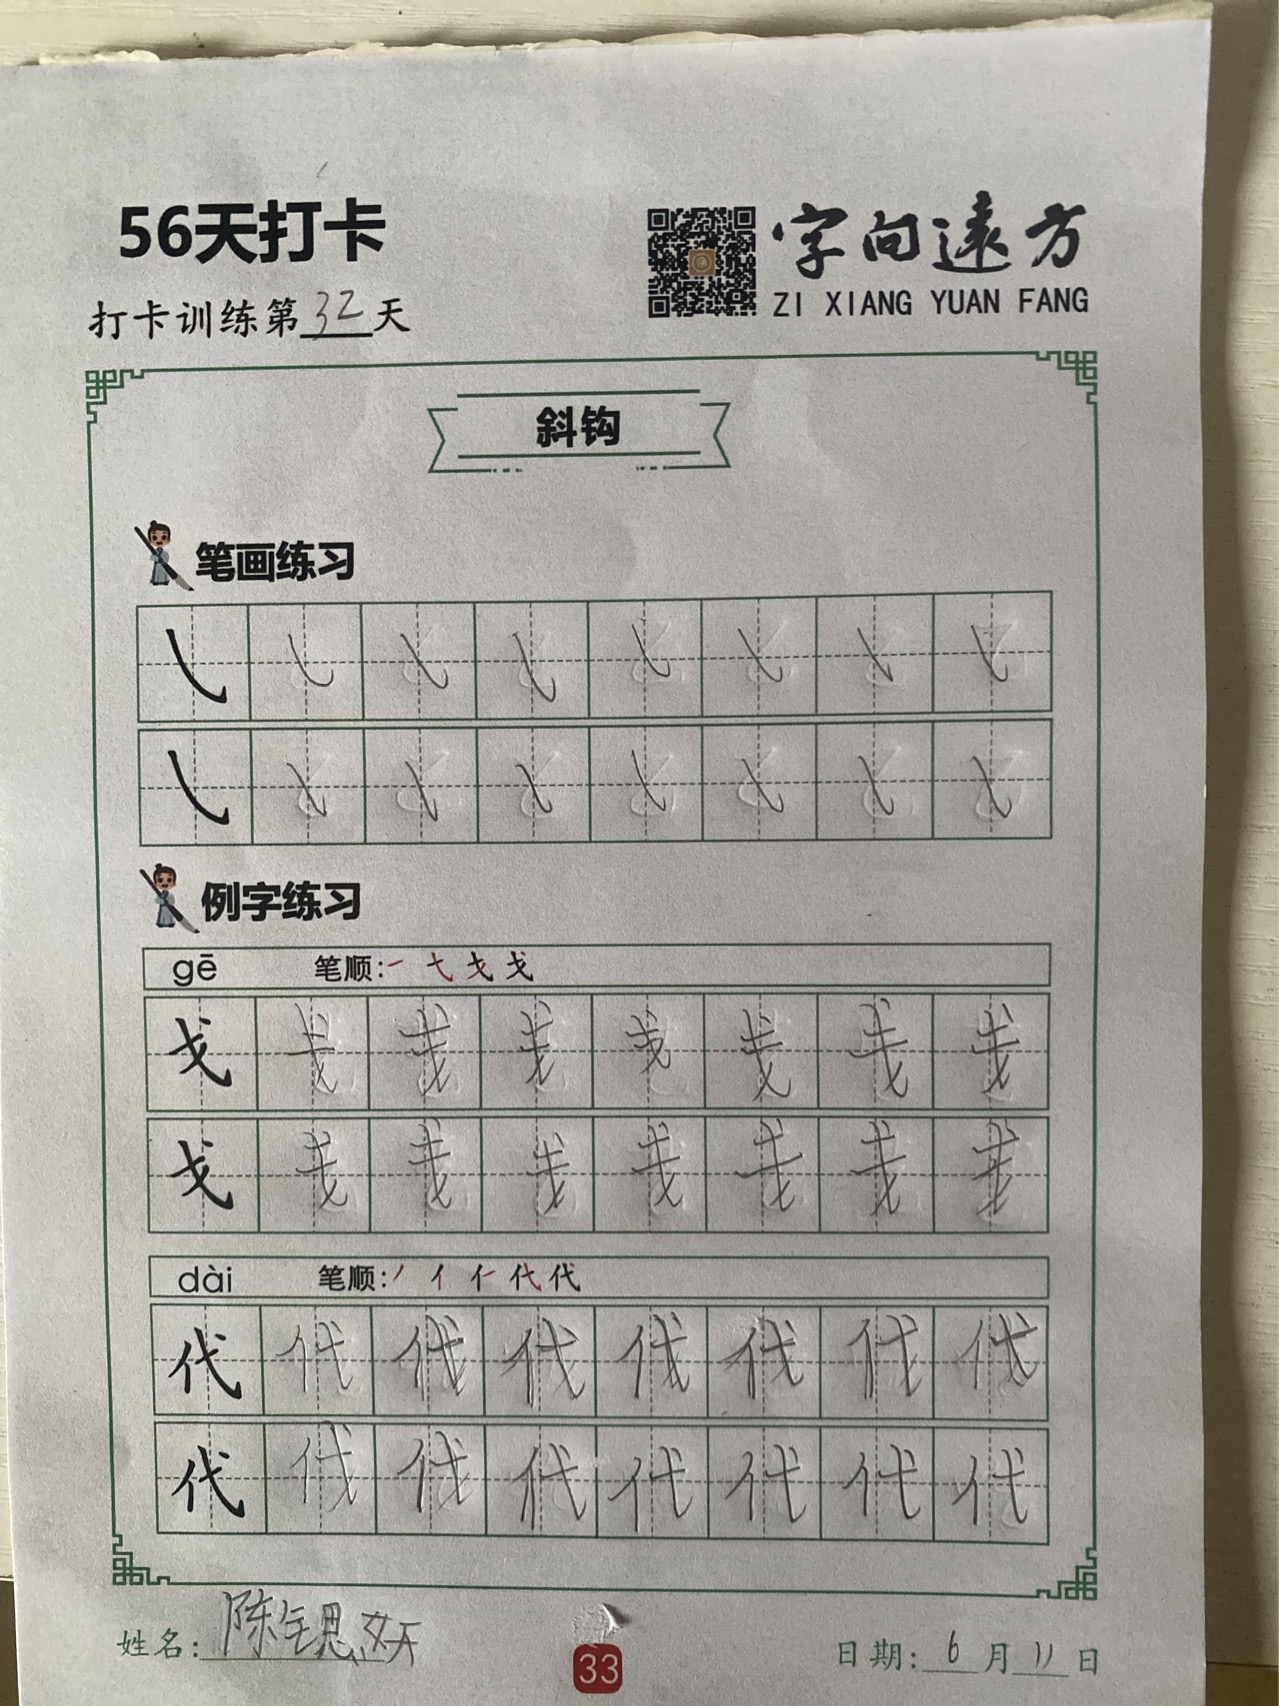 56天打卡
字向遠方
ZI XIANG YUAN FANG
打卡训练第32天
斜钩
笔画练习
例字练习
gē 笔顺:
戈 戈 戈 戈 戈 戈 戈 戈
戈 戈 戈 戈 戈 戈 戈 戈
dài 笔顺: 代
代 代 代 代 代 代 代 代
代 代 代 代 代 代 代 代
姓名: 陈 思妖
33
日期: 6月11日